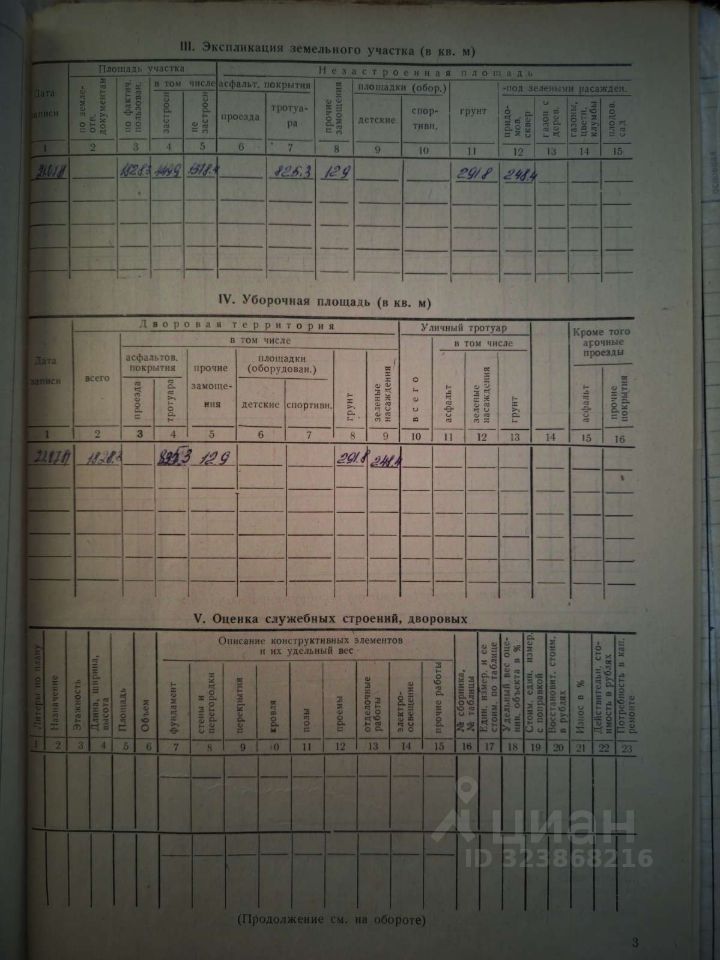 III. Экспликация земельного участка (в кв. м)
Дата записи
Площадь участка
по земле- отв. документам
по фактич. пользован.
в том числе
застроен
не застроен
Незастроенная площадь
асфальт. покрытия
проезда
тротуа- ра
прочие замощения
площадки (обор.)
детские
спор- тивн.
грунт
под зелеными насажден.
придо- мов. сквер
газон с дерев.
газоны, цветн. клумбы
плодов. сад
1 2 3 4 5 6 7 8 9 10 11 12 13 14 15
825.3 129 291.8 248.4
IV. Уборочная площадь (в кв. м)
Дата записи
Дворовая территория
всего
в том числе
асфальтов. покрытия
проезда
тротуара
прочие замоще- ния
площадки (оборудован.)
детские
спортивн.
грунт
зеленые насаждения
Уличный тротуар
всего
в том числе
асфальт
зеленые насаждения
грунт
Кроме того арочные проезды
асфальт
прочие покрытия
1 2 3 4 5 6 7 8 9 10 11 12 13 14 15 16
1828.3 129 291.8 248.4
V. Оценка служебных строений, дворовых
Литеры по плану
Назначение
Этажность
Длина, ширина, высота
Площадь
Объем
Описание конструктивных элементов
и их удельный вес
фундамент
стены и перегородки
перекрытия
кровля
полы
проемы
отделочные работы
электро- освещение
прочие работы
№ сборника, № таблицы
Един. измер. и ее стоим. по таблице
Удельный вес оце- нив. объекта в %
Стоим. един. измер. с поправкой
Восстановит. стоим. в рублях
Износ в %
Действительн. сто- имость в рублях
Потребность в кап. ремонте
1 2 3 4 5 6 7 8 9 10 11 12 13 14 15 16 17 18 19 20 21 22 23
циан
ID 323868216
(Продолжение см. на обороте)
3